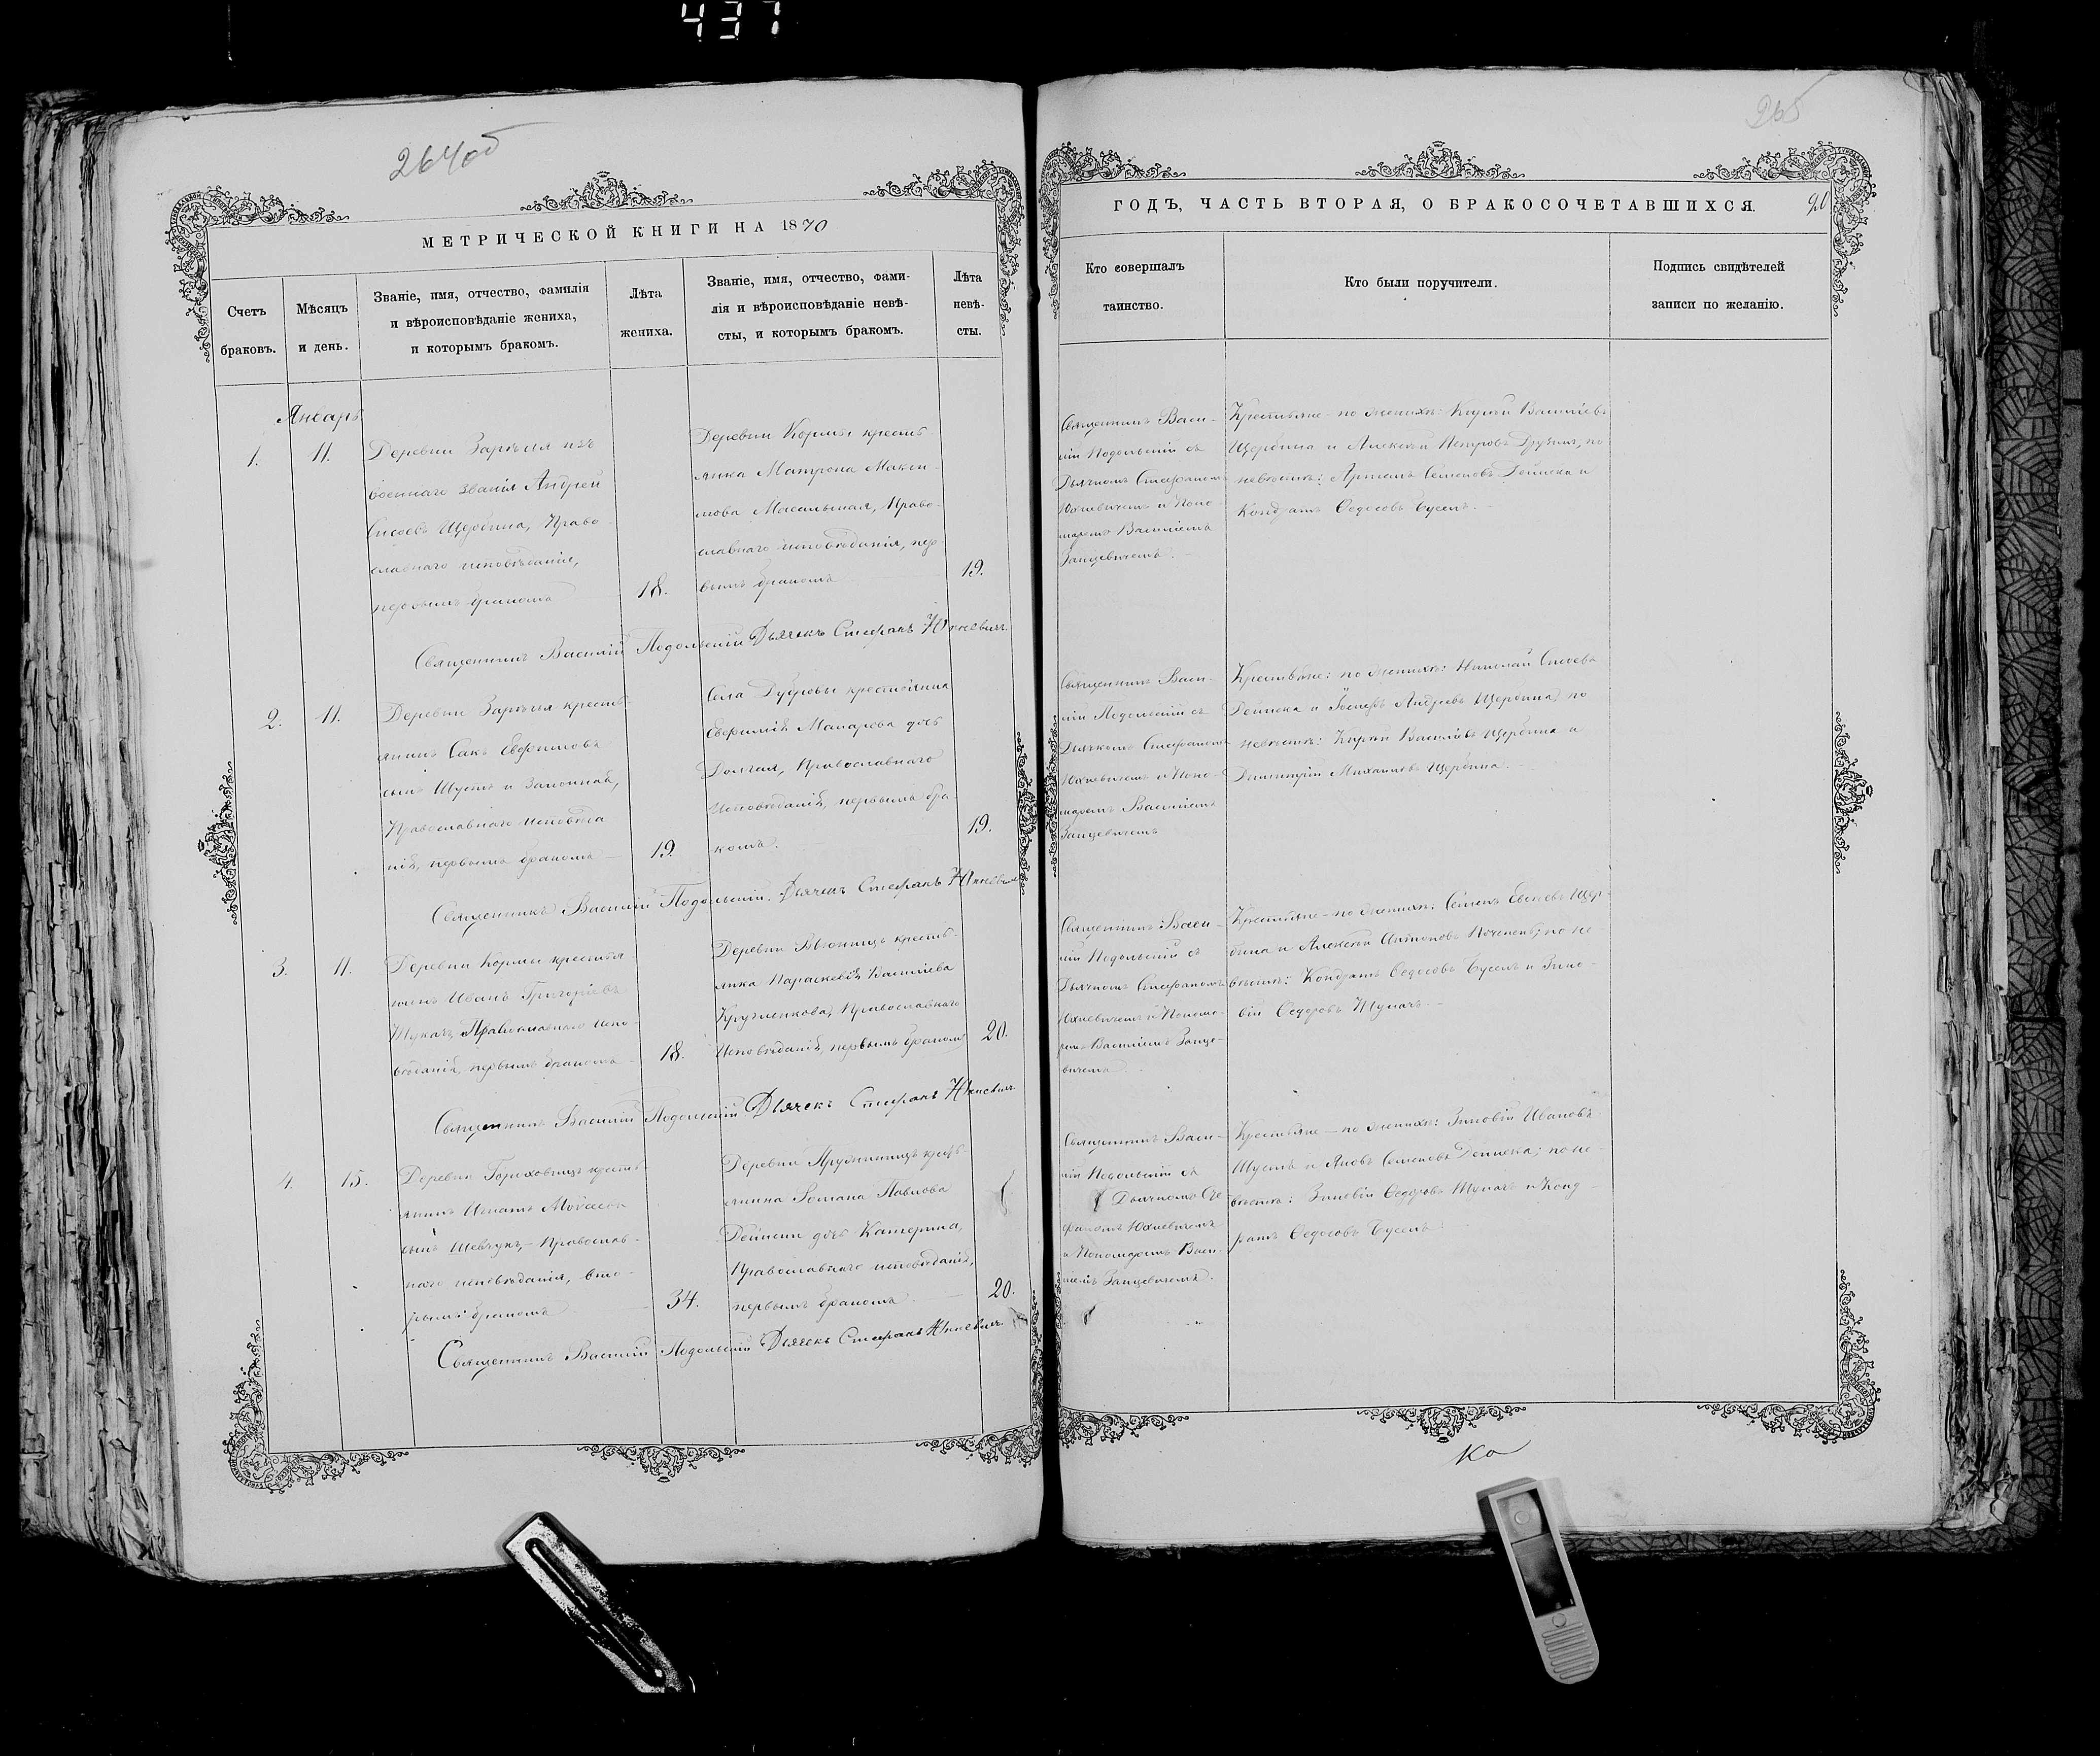 437
264об
265
МЕТРИЧЕСКОЙ КНИГИ НА 1870
Счетъ
браковъ.
Мѣсяцъ
и день.
Званіе, имя, отчество, фамилія
и вѣроисповѣданіе жениха,
и которымъ бракомъ.
Лѣта
жениха.
Званіе, имя, отчество, фами-
лія и вѣроисповѣданіе невѣ-
сты, и которымъ бракомъ.
Лѣта
невѣ-
сты.
Январь
1.
11.
Деревни Зарѣчья изъ
военнаго званія Андрей
Щербина, Право-
славнаго исповѣданія,
первымъ бракомъ
18.
Деревни Кормы кресть-
янка Матрона Макси-
мова Право-
славнаго исповѣданія, пер-
вымъ бракомъ
19.
Священникъ Василій Подольскій Дьячекъ Стефанъ Юхневичъ
2.
11.
Деревни Зарѣчья кресть-
янинъ Сакъ Евфимовъ
сынъ Шустъ и
Православнаго исповѣда
нія, первымъ бракомъ
19.
Села Дубровы крестьянина
Макарева дочь
Долгая, Православнаго
исповѣданія, первымъ бра-
комъ.
19.
Священникъ Василій Подольскій. Дьячекъ Стефанъ Юхневичъ
3.
11.
Деревни Кормы крестья-
нинъ Иванъ Григоріевъ
Православнаго испо-
вѣданія, первымъ бракомъ
18.
Деревни кресть-
янка Параскевія Василіева
Православнаго
исповѣданія, первымъ бракомъ
20.
Священникъ Василій Подольскій Дьячекъ Стефанъ Юхневичъ
4.
15.
Деревни Гороховищъ кресть-
янинъ Игнатъ Моисеевъ
сынъ Шевчукъ, Православ-
наго исповѣданія, вто-
рымъ бракомъ
34.
Деревни кресть-
янина Романа Павлова
Дейнеки дочь Катерина,
Православнаго исповѣданія,
первымъ бракомъ
20.
Священникъ Василій Подольскій Дьячекъ Стефанъ Юхневичъ
ГОДЪ, ЧАСТЬ ВТОРАЯ, О БРАКОСОЧЕТАВШИХСЯ.
Кто совершалъ
таинство.
Кто были поручители.
Подпись свидѣтелей
записи по желанію.
Священникъ Васи-
лій Подольскій съ
Дьячкомъ Стефаномъ
Юхневичемъ и Поно-
маремъ Василіемъ
Занцевичемъ.
Крестьяне по женихѣ: Василіевъ
Щербина и Алексѣй Петровъ по
невѣстѣ: Семеновъ Дейнека и
Кондратъ Ѳедосовъ Буселъ.
Священникъ Васи-
лій Подольскій съ
Дьячкомъ Стефаномъ
Юхневичемъ и Поно-
маремъ Василіемъ
Занцевичемъ
Крестьяне: по женихѣ: Николай
Дейнека и Андреевъ Щербина, по
невѣстѣ: Василіевъ Щербина и
Димитрій Михаиловъ Щербина.
Священникъ Васи-
лій Подольскій съ
Дьячкомъ Стефаномъ
Юхневичемъ и Понома-
ремъ Василіемъ Занце-
вичемъ
Крестьяне по женихѣ: Семенъ Щер-
бина и Алексѣй Антоновъ по не-
вѣстѣ: Кондратъ Ѳедосовъ Буселъ и Зино-
вій Ѳедоровъ
Священникъ Васи-
лій Подольскій съ
Дьячкомъ Сте
фаномъ Юхневичемъ
и Пономаремъ Васи-
ліемъ Занцевичемъ.
Крестьяне по женихѣ: Зиновій Ивановъ
Шустъ и Яковъ Семеновъ Дейнека; по не-
вѣстѣ: Зиновій Ѳедоровъ и Конд-
ратъ Ѳедосовъ Буселъ